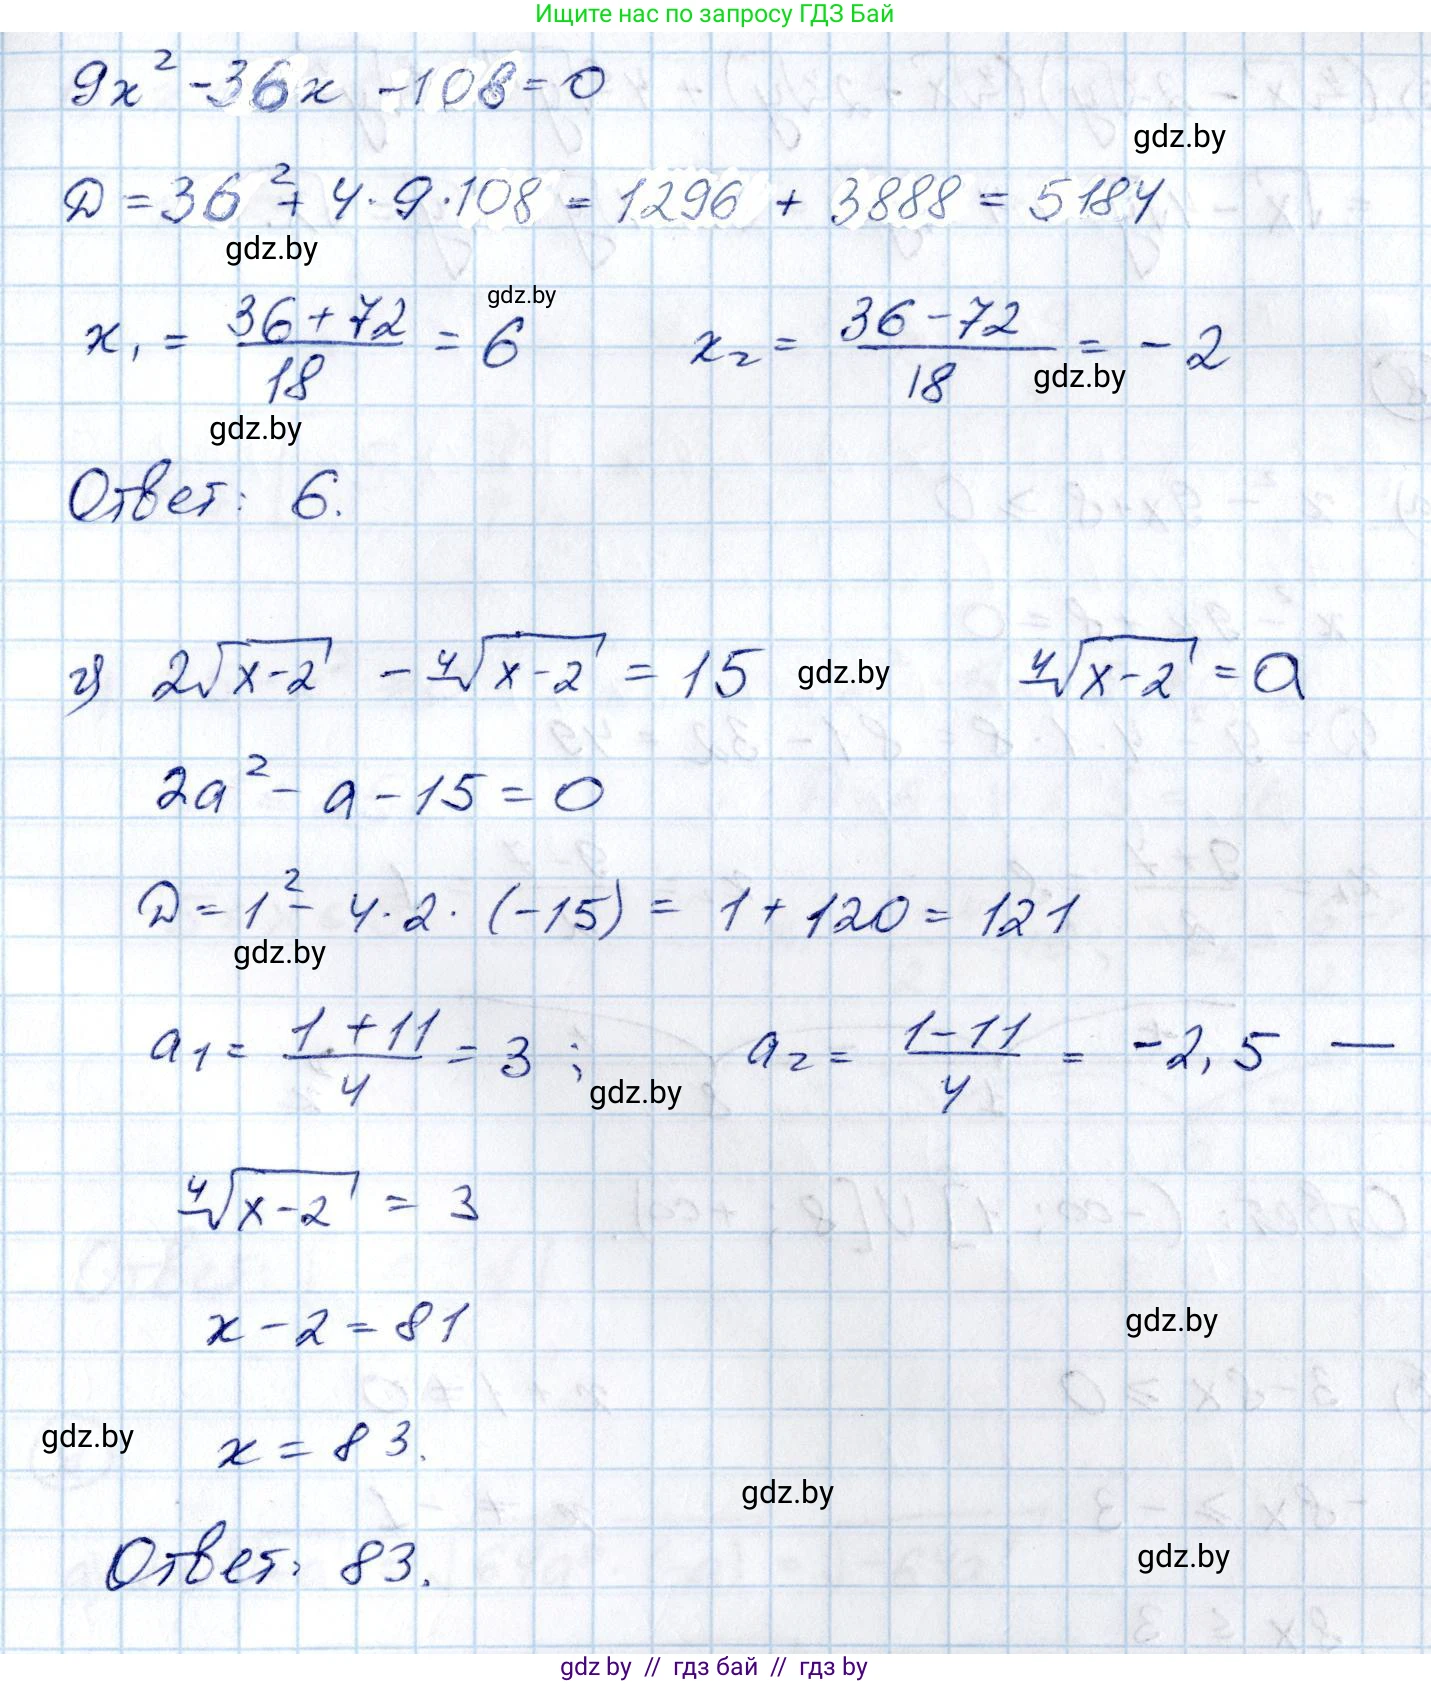 Ищите нас по запросу ГДЗ Бай
9x² - 36x - 108 = 0
gdz.by
D = 36² + 4·9·108 = 1296 + 3888 = 5184
gdz.by
gdz.by
x₁ = (36+72)/18 = 6    x₂ = (36-72)/18 = -2
gdz.by
gdz.by
Ответ: 6.
г) 2√(x-2) - ⁴√(x-2) = 15 gdz.by ⁴√(x-2) = a
2a² - a - 15 = 0
D = 1² - 4·2·(-15) = 1 + 120 = 121
gdz.by
a₁ = (1+11)/4 = 3 ;    a₂ = (1-11)/4 = -2,5 —
gdz.by
⁴√(x-2) = 3
x - 2 = 81
gdz.by
gdz.by x = 83.
gdz.by
gdz.by
Ответ: 83.
gdz by // гдз бай // гдз by